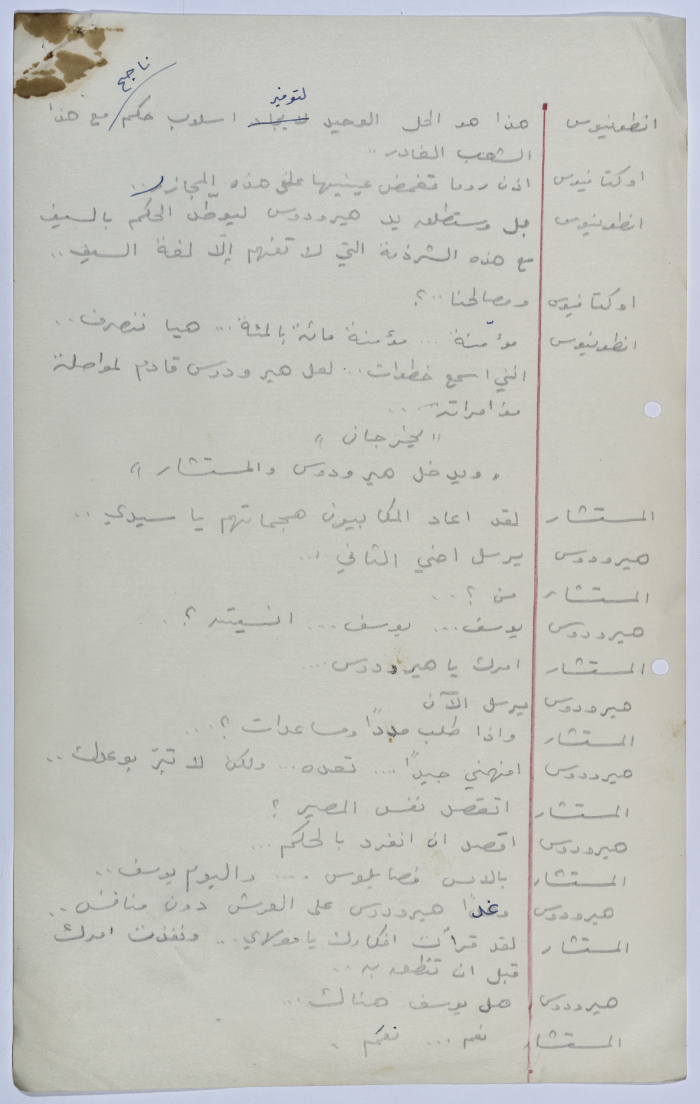 ناجح
انطونيوس هذا هو الحل الوحيد لايجاد لتوفير اسلوب حكم مع هذا
الشعب الغادر..
اوكتافيوس اذن روما تغمض عينيها على هذه المجازر..
انطونيوس بل وستطلق يد هيرودوس ليوطّد الحكم بالسيف
مع هذه الشرذمة التي لا تفهم إلّا لغة السيف..
اوكتافيوس ومصالحنا..؟
انطونيوس مؤمّنة... مؤمنة مائة بالمئة... هيا ننصرف..
انني اسمع خطوات... لعل هيرودوس قادم لمواصلة
مؤامراته...
"يخرجان"
"ويدخل هيرودوس والمستشار"
المستشار لقد اعاد المكابيون هجماتهم يا سيدي..
هيرودوس يرسل اخي الثاني...
المستشار من؟..
هيرودوس يوسف... يوسف... انسيته؟.
المستشار امرك يا هيرودوس...
هيرودوس يرسل الآن
المستشار واذا طلب مددًا ومساعدات؟...
هيرودوس افهمني جيدًا.... تعده... ولكن لا تبرّ بوعدك..
المستشار اتقصد نفس المصير؟
هيرودوس اقصد ان انفرد بالحكم...
المستشار بالامس فصايلوس.... واليوم يوسف..
هيرودوس وغدًا هيرودوس على العرش دون منافس..
المستشار لقد قرأت افكارك يا مولاي... ونفذت امرك
قبل ان تنطق به..
هيرودوس هل يوسف هنالك...
المستشار نعم... نعم.